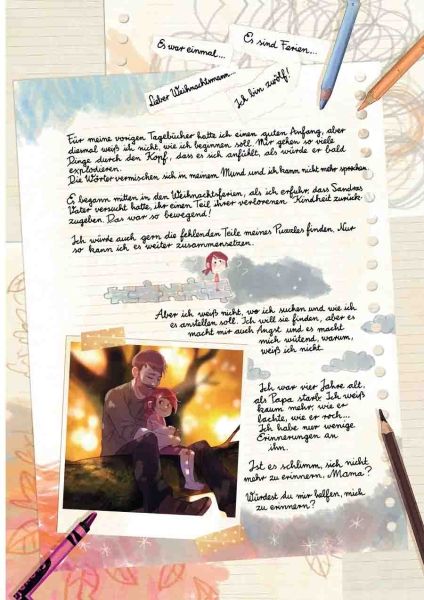 Es war einmal...
Es sind Ferien...
Lieber Weihnachtsmann...
Ich bin zwölf!
Für meine vorigen Tagebücher hatte ich einen guten Anfang, aber
diesmal weiß ich nicht, wie ich beginnen soll. Mir gehen so viele
Dinge durch den Kopf, dass es sich anfühlt, als würde er bald
explodieren.
Die Wörter vermischen sich in meinem Mund und ich kann nicht mehr sprechen.
Es begann mitten in den Weihnachtsferien, als ich erfuhr, dass Sandras
Vater versucht hatte, ihr einen Teil ihrer verlorenen Kindheit zurück-
zugeben. Das war so bewegend!
Ich würde auch gern die fehlenden Teile meines Puzzles finden. Nur
so kann ich es weiter zusammensetzen.
Aber ich weiß nicht, wo ich suchen und wie ich
es anstellen soll. Ich will sie finden, aber es
macht mir auch Angst und es macht
mich wütend, warum,
weiß ich nicht.
Ich war vier Jahre alt,
als Papa starb. Ich weiß
kaum mehr, wie er
lachte, wie er roch...
Ich habe nur wenige
Erinnerungen an
ihn.
Ist es schlimm, sich nicht
mehr zu erinnern, Mama?
Würdest du mir helfen, mich
zu erinnern?